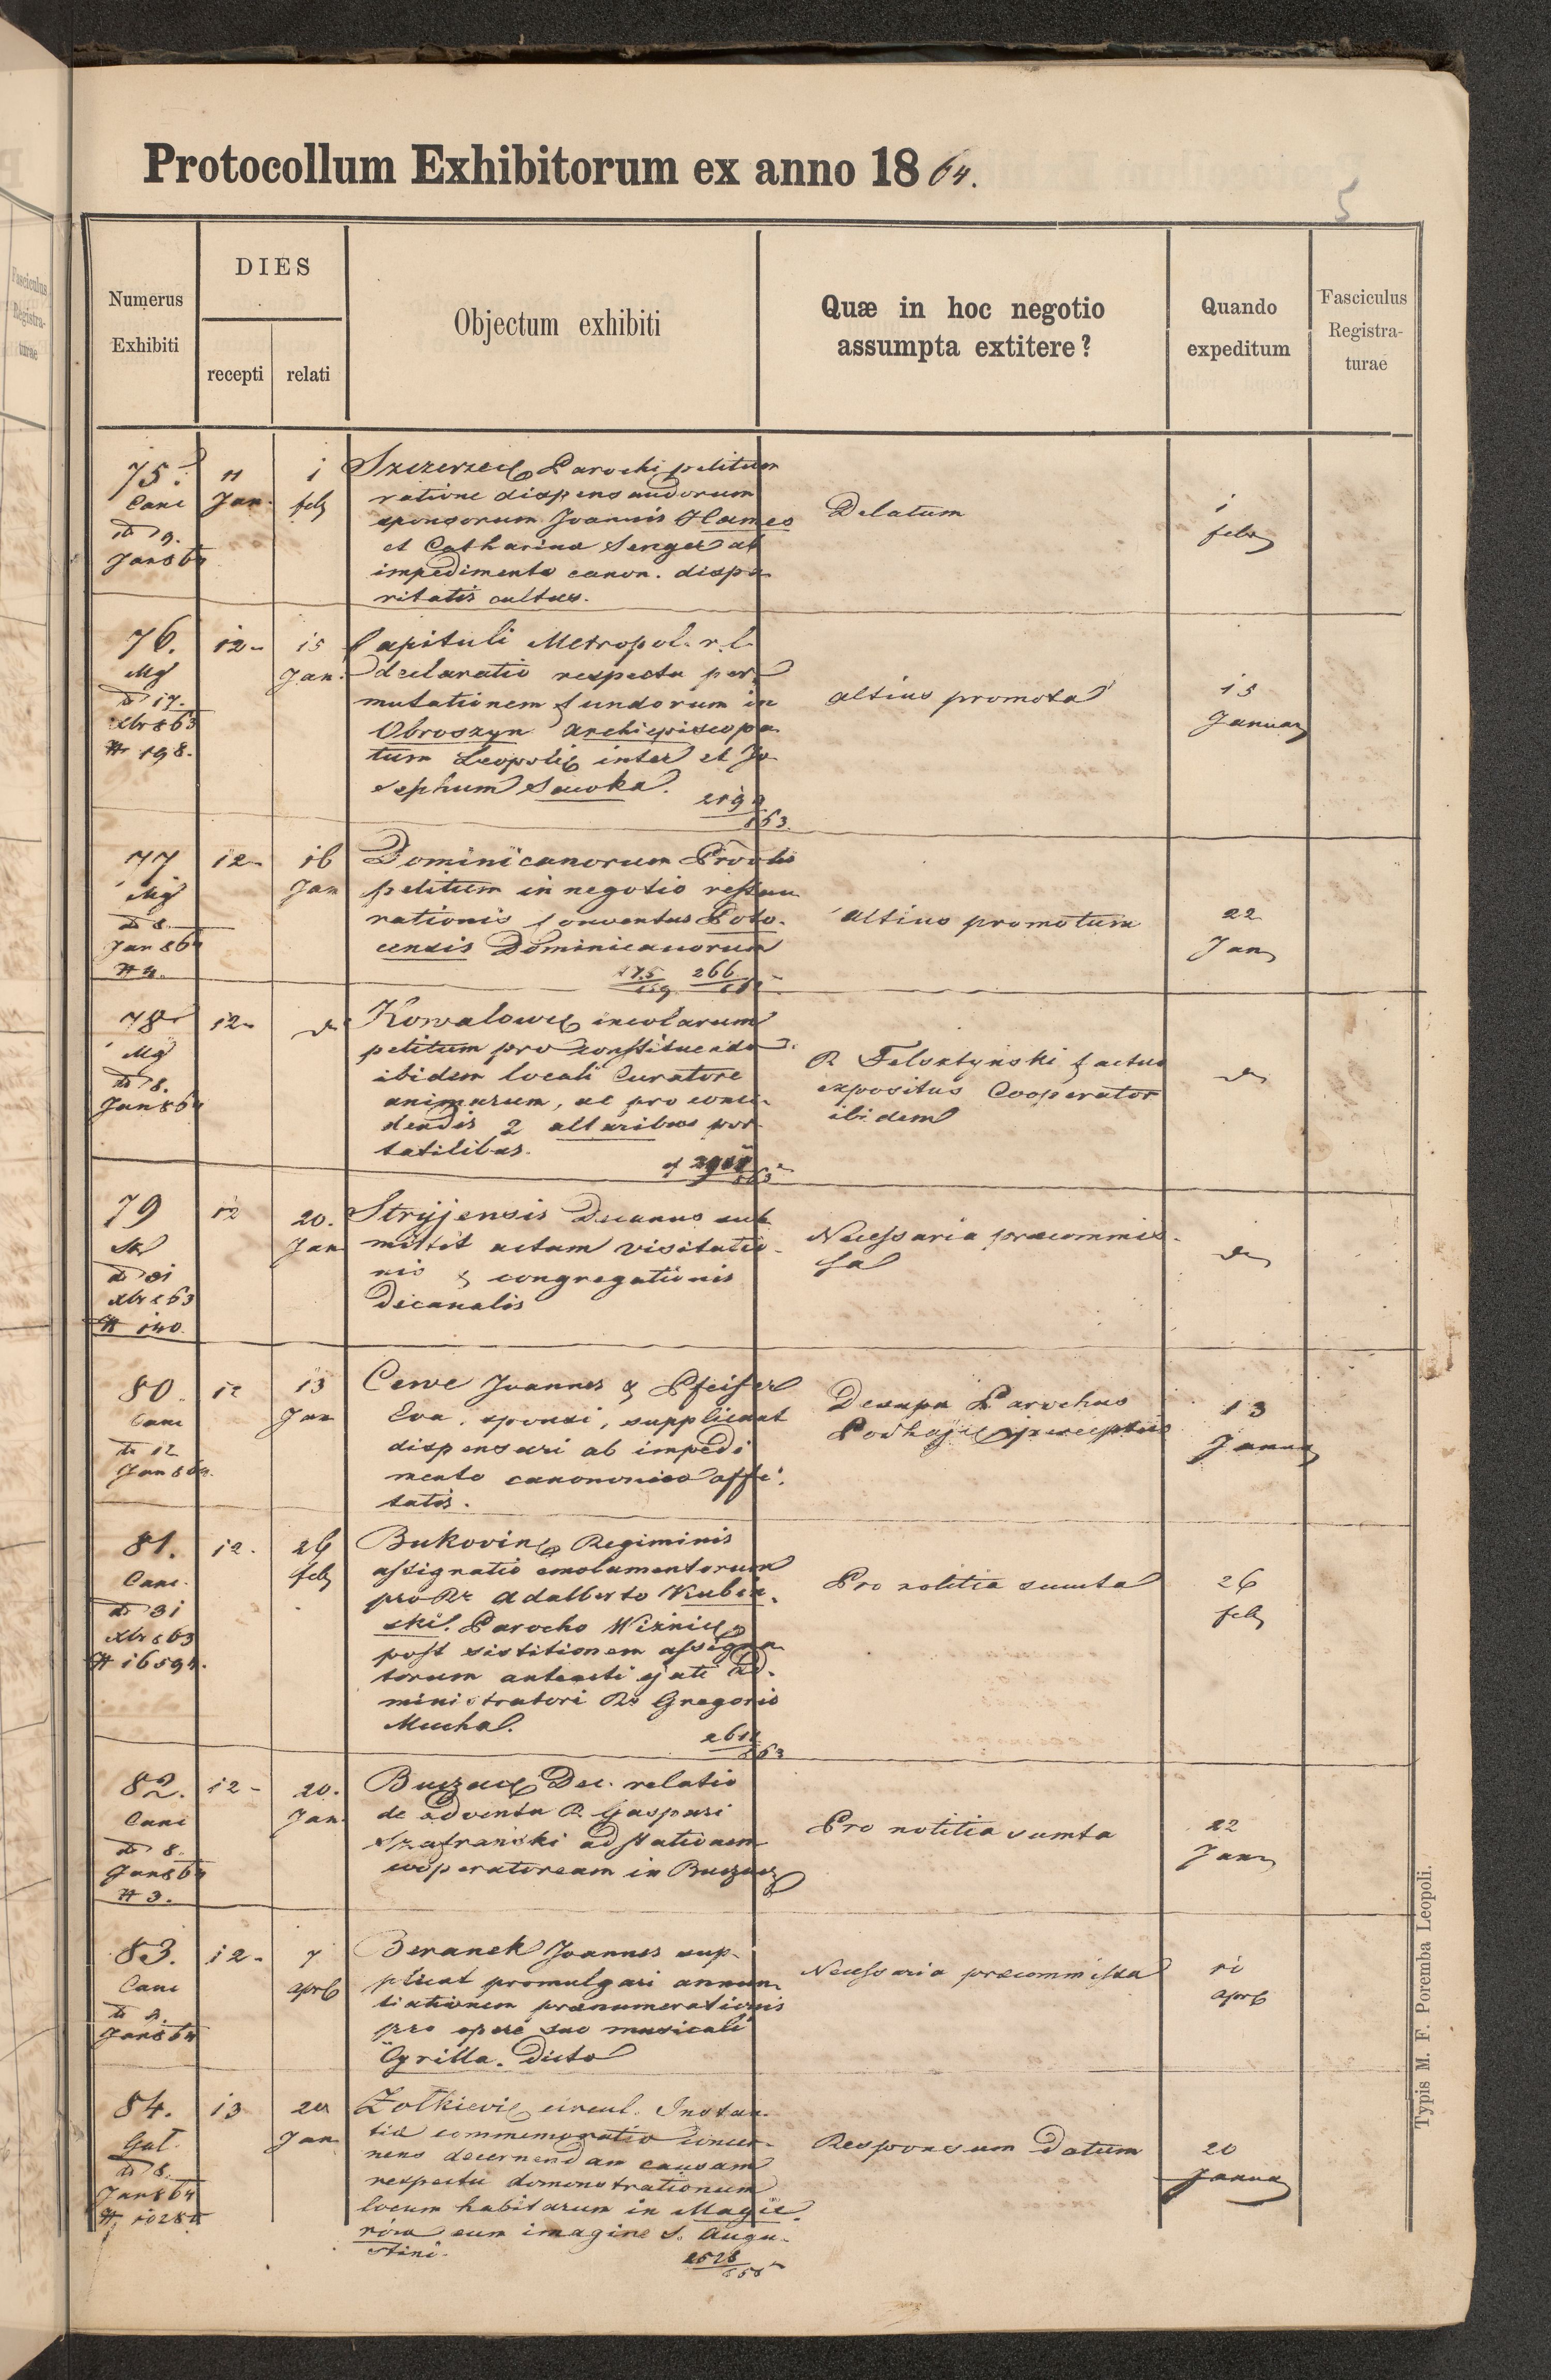 Protocollum Exhibitorum ex anno 1864.
5
Numerus
Exhibiti
DIES
recepti
relati
Objectum exhibiti
Quæ in hoc negotio
assumpta extitere?
Quando
expeditum
Fasciculus
Registra-
turae
75.
Canc
dto 9.
Jan 864
11
Jan.
1
feb
Parochi petitum
ratione dispensandorum
sponsorum Joannis Hames
et Catharina Senger ab
impedimento canon. dispa
ritatis cultus.
Delatum
1
febr
76.
Mg
dto 17.
Xbr 863
N 198.
12-
15
Jan.
Capituli Metropol. r. l.
declaratio respectu per
mutationem fundorum in
Obroszyn Archiepiscopa
tum Leopoli inter et Jo
sephum Sawka.
863.
altius promota
15
Januar
77
Mg
dto 8.
Jan 864
N 4.
12-
16
Jan
Dominicanorum
petitum in negotio restau
rationis Conventus Poto-
censis Dominicanorum
175 266
altius promotum
22
Jan
78
Mg
dto 8.
Jan 864
12-
Kowalow incolarum
petitum pro constituendo
ibidem locali Curatore
animarum, ac pro conce-
dendis 2 altaribus por
tatilibus.
R Felsztynski factus
expositus Cooperator
ibidem
79
dto 31
Xbr 863
N 140.
12
20.
Jan
Stryjensis Decanus sub
mittit actum visitatio-
nis & congregationis
Decanalis
Necessaria præcommis-
sa
80.
Canc
dto 12
Jan 864.
12
13
Jan
Cewe Joannes & Pfeifer
Eva, sponsi, supplicant
dispensari ab impedi
mento canononico affi.
tatis.
Desupr Parochus
13
Janua
81.
Canc.
dto 31
Xbr 863
N 16594.
12.
26
feb
Bukovin Regiminis
assignatio emolumentorum
pro Rr Adalberto Kubin.
ski. Parocho Wiznic
post sistitionem assigna
torum anteacti ejati ad.
ministratori Rr Gregorio
Mucha.
863
Pro notitia sumta
26
feb
82.
Canc
dto 8.
Jan 864
N 3.
12-
20.
Jan.
Buczac Dec. relatio
de adventu R. Gaspari
Szafranski ad stationem
cooperatoream in Buczacz
Pro notitia sumta
22
Jan
83.
Canc
Jan 864
12-
7
apr
Beranek Joannes sup-
plicat promulgari annun-
tiationem prænumerationis
pro opere suo musicali
Cyrilla. dicto
Necessaria præcommissa
11
apr
84.
Gal.
dto 8.
Jan 864
13
20
Jan
Zolkievi circul. Instan-
tia commemoratio concer-
nens decernendam causam
respectu domonstrationum
locum habitarum in Magie.
rów cum imagine S. Augu-
stini.
Responsum Datum
20
Janua
Typis M. F. Poremba Leopoli.
Fasciculus
Registra-
turae